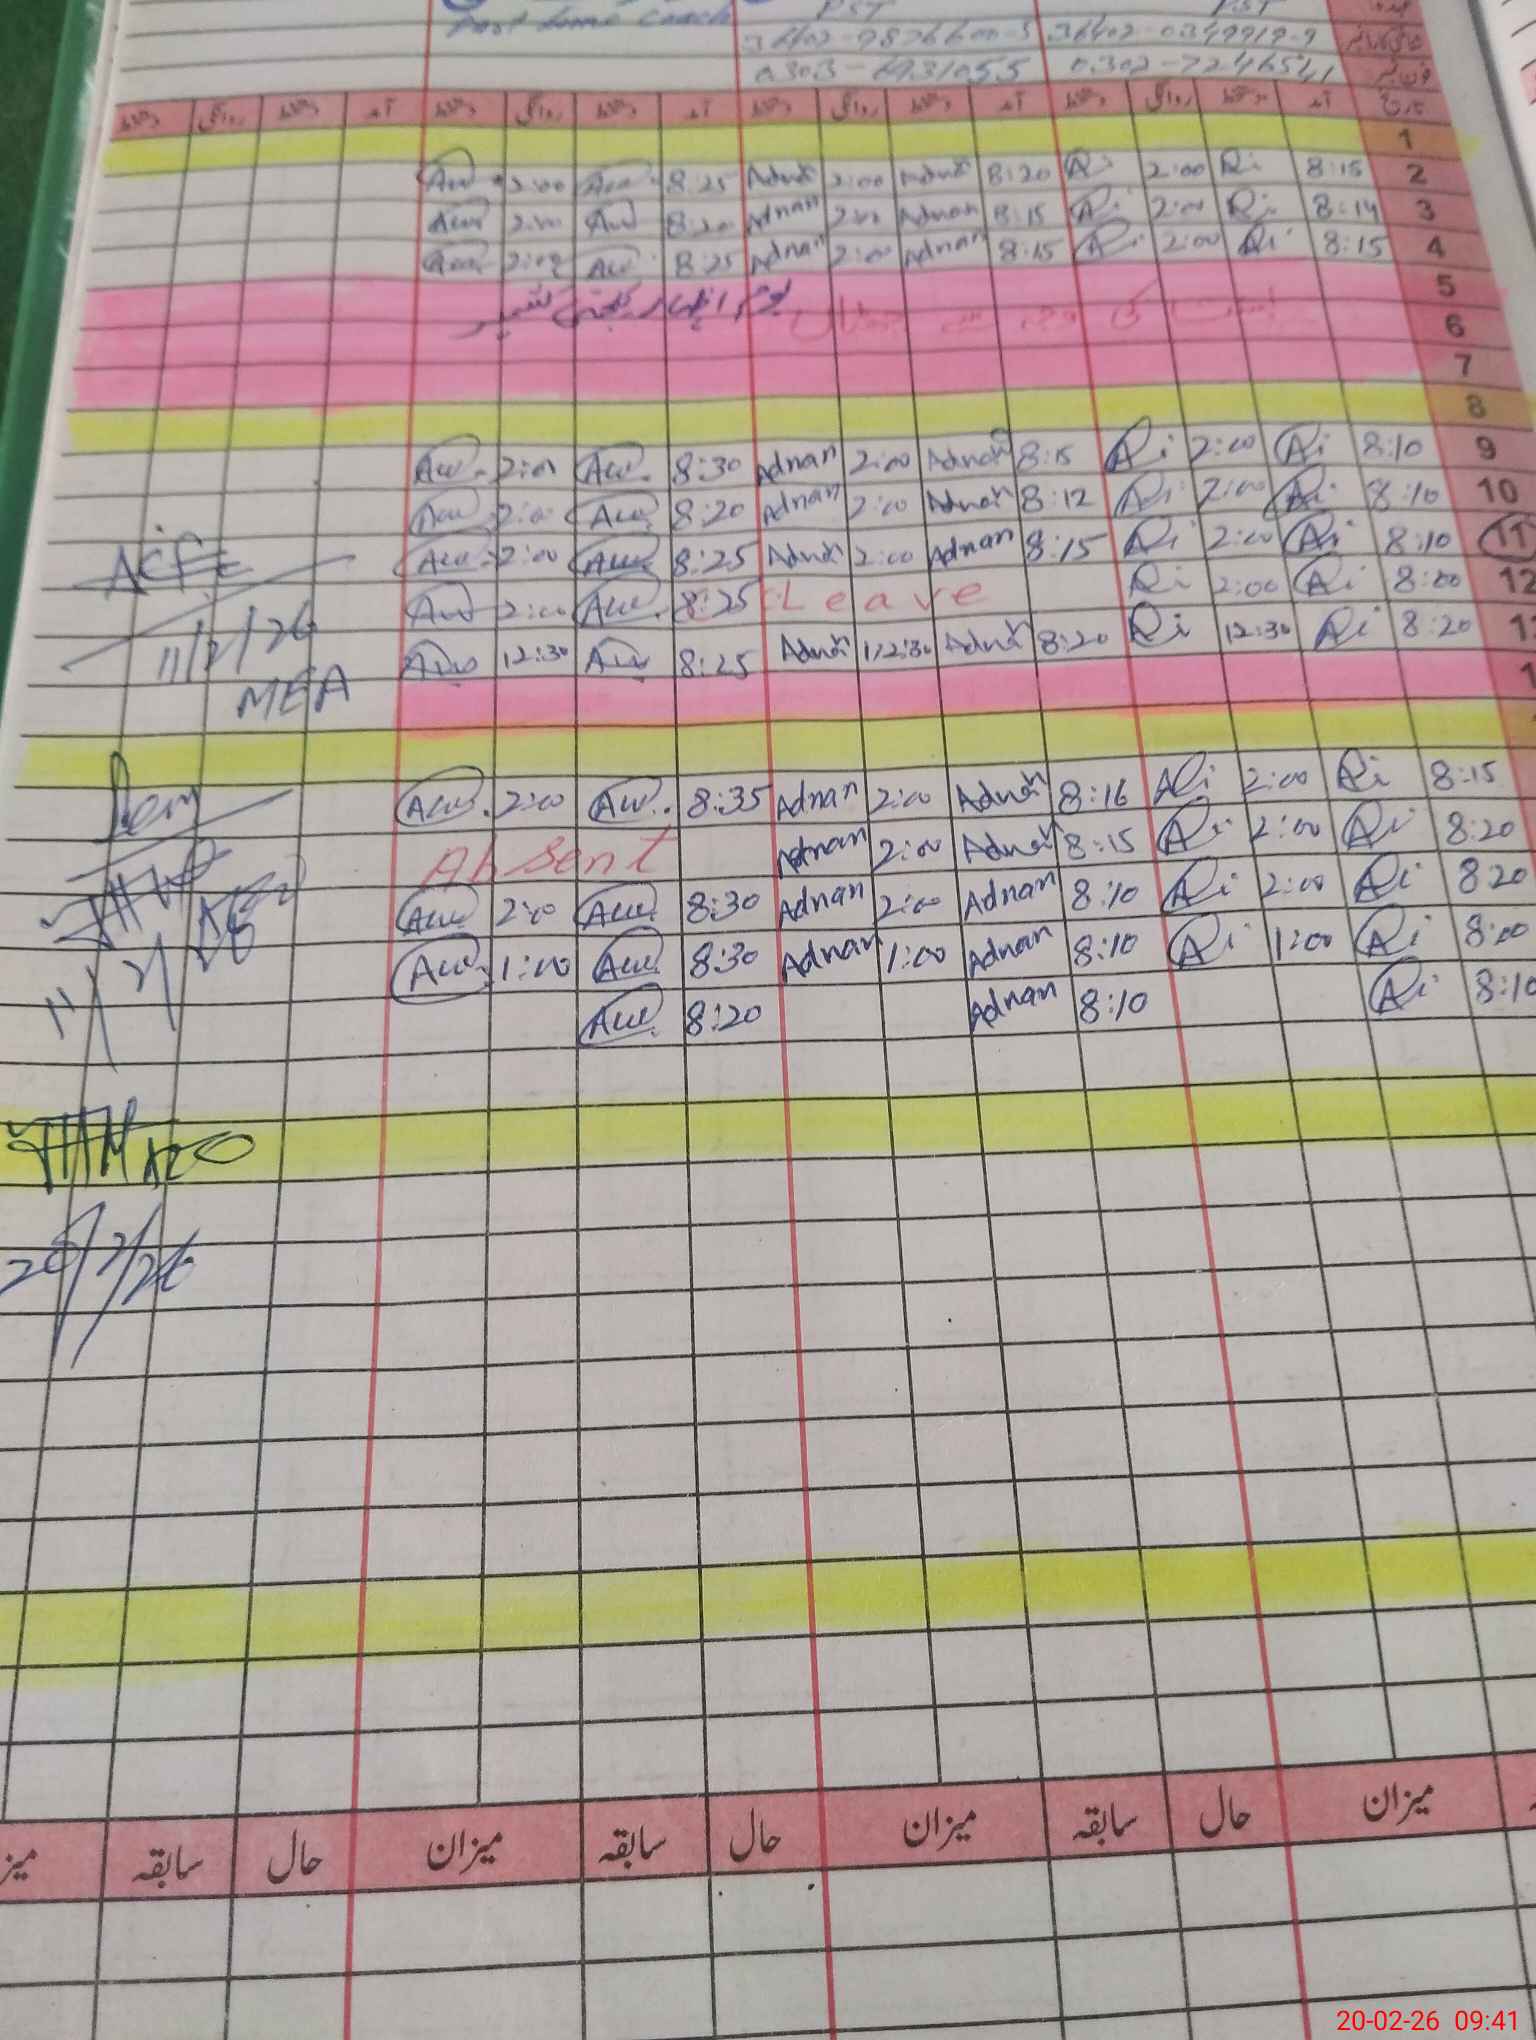 Part time Coach PST PST
36402-9826600-5 36402-0349919-9
0303-6931055 0302-7246541
دستخط روانگی دستخط آمد دستخط روانگی دستخط آمد دستخط روانگی دستخط آمد دستخط روانگی دستخط آمد تاریخ
1
Aw 2:00 Aw 8:25 Adnan 2:00 Adnan 8:20 Ali 2:00 Ali 8:15 2
Aw 2:00 Aw 8:20 Adnan 2:00 Adnan 8:15 Ali 2:00 Ali 8:14 3
Aw 2:00 Aw 8:25 Adnan 2:00 Adnan 8:15 Ali 2:00 Ali 8:15 4
یوم اظہار یکجہتی کشمیر 5
6
7
8
Aw. 2:00 Aw. 8:30 Adnan 2:00 Adnan 8:15 Ali 2:00 Ali 8:10 9
Aw 2:00 Aw 8:20 Adnan 2:00 Adnan 8:12 Ali 2:00 Ali 8:10 10
Aw 2:00 Aw 8:25 Adnan 2:00 Adnan 8:15 Ali 2:00 Ali 8:10 11
Aw 2:00 Aw 8:25 Leave Ali 2:00 Ali 8:00 12
11/2/26
Aw 12:30 Aw 8:25 Adnan 12:30 Adnan 8:20 Ali 12:30 Ali 8:20
MEA
Aw. 2:00 Aw. 8:35 Adnan 2:00 Adnan 8:16 Ali 2:00 Ali 8:15
Absent Adnan 2:00 Adnan 8:15 Ali 2:00 Ali 8:20
Aw 2:00 Aw 8:30 Adnan 2:00 Adnan 8:10 Ali 2:00 Ali 8:20
Aw. 1:00 Aw 8:30 Adnan 1:00 Adnan 8:10 Ali 1:00 Ali 8:00
Aw 8:20 Adnan 8:10 Ali 8:10
20/2/26
میزان حال سابقہ میزان حال سابقہ میزان حال سابقہ
20-02-26 09:41